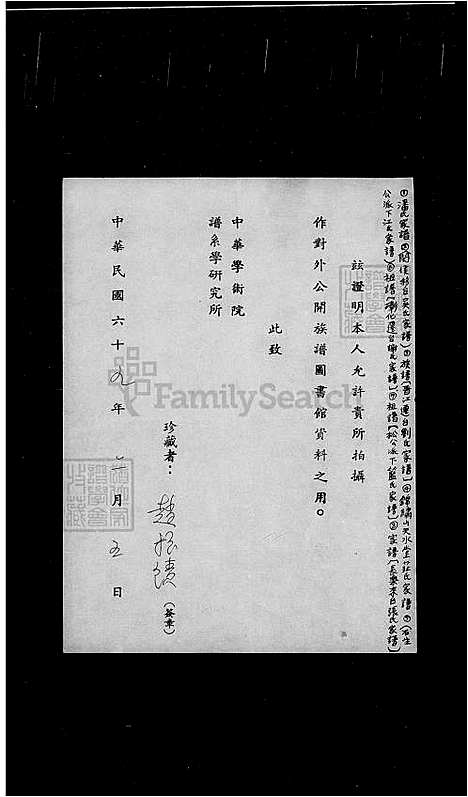 ①潘氏家譜②閩侯移台吳氏家譜③族譜【晋江遷台劉氏家譜】④錦繡山天水堂莊氏家譜⑤(石生
公派下江氏家譜)⑥祖譜【彰化遷台 氏家譜】⑦祖譜【松公派下藍氏家譜】⑧家譜【長樂來台張氏家譜】
玆證明本人允許貴所拍攝
作對外公開族譜圖書館資料之用。
此致
中華學術院
譜系學研究所
珍藏者:趙振績(簽章)
中華民國六十九年 月五日
FamilySearch